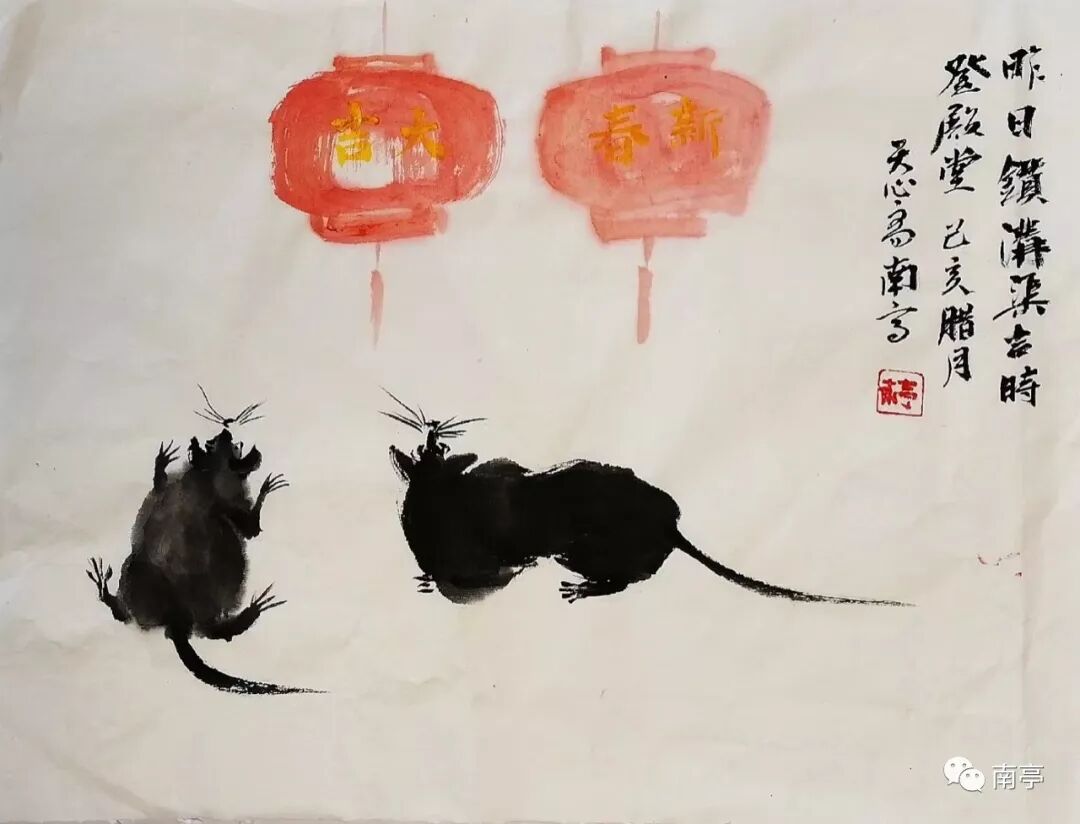 昨日鑽溝渠吉時
登殿堂 己亥腊月
天心南亭
新春
大吉
南亭
南亭